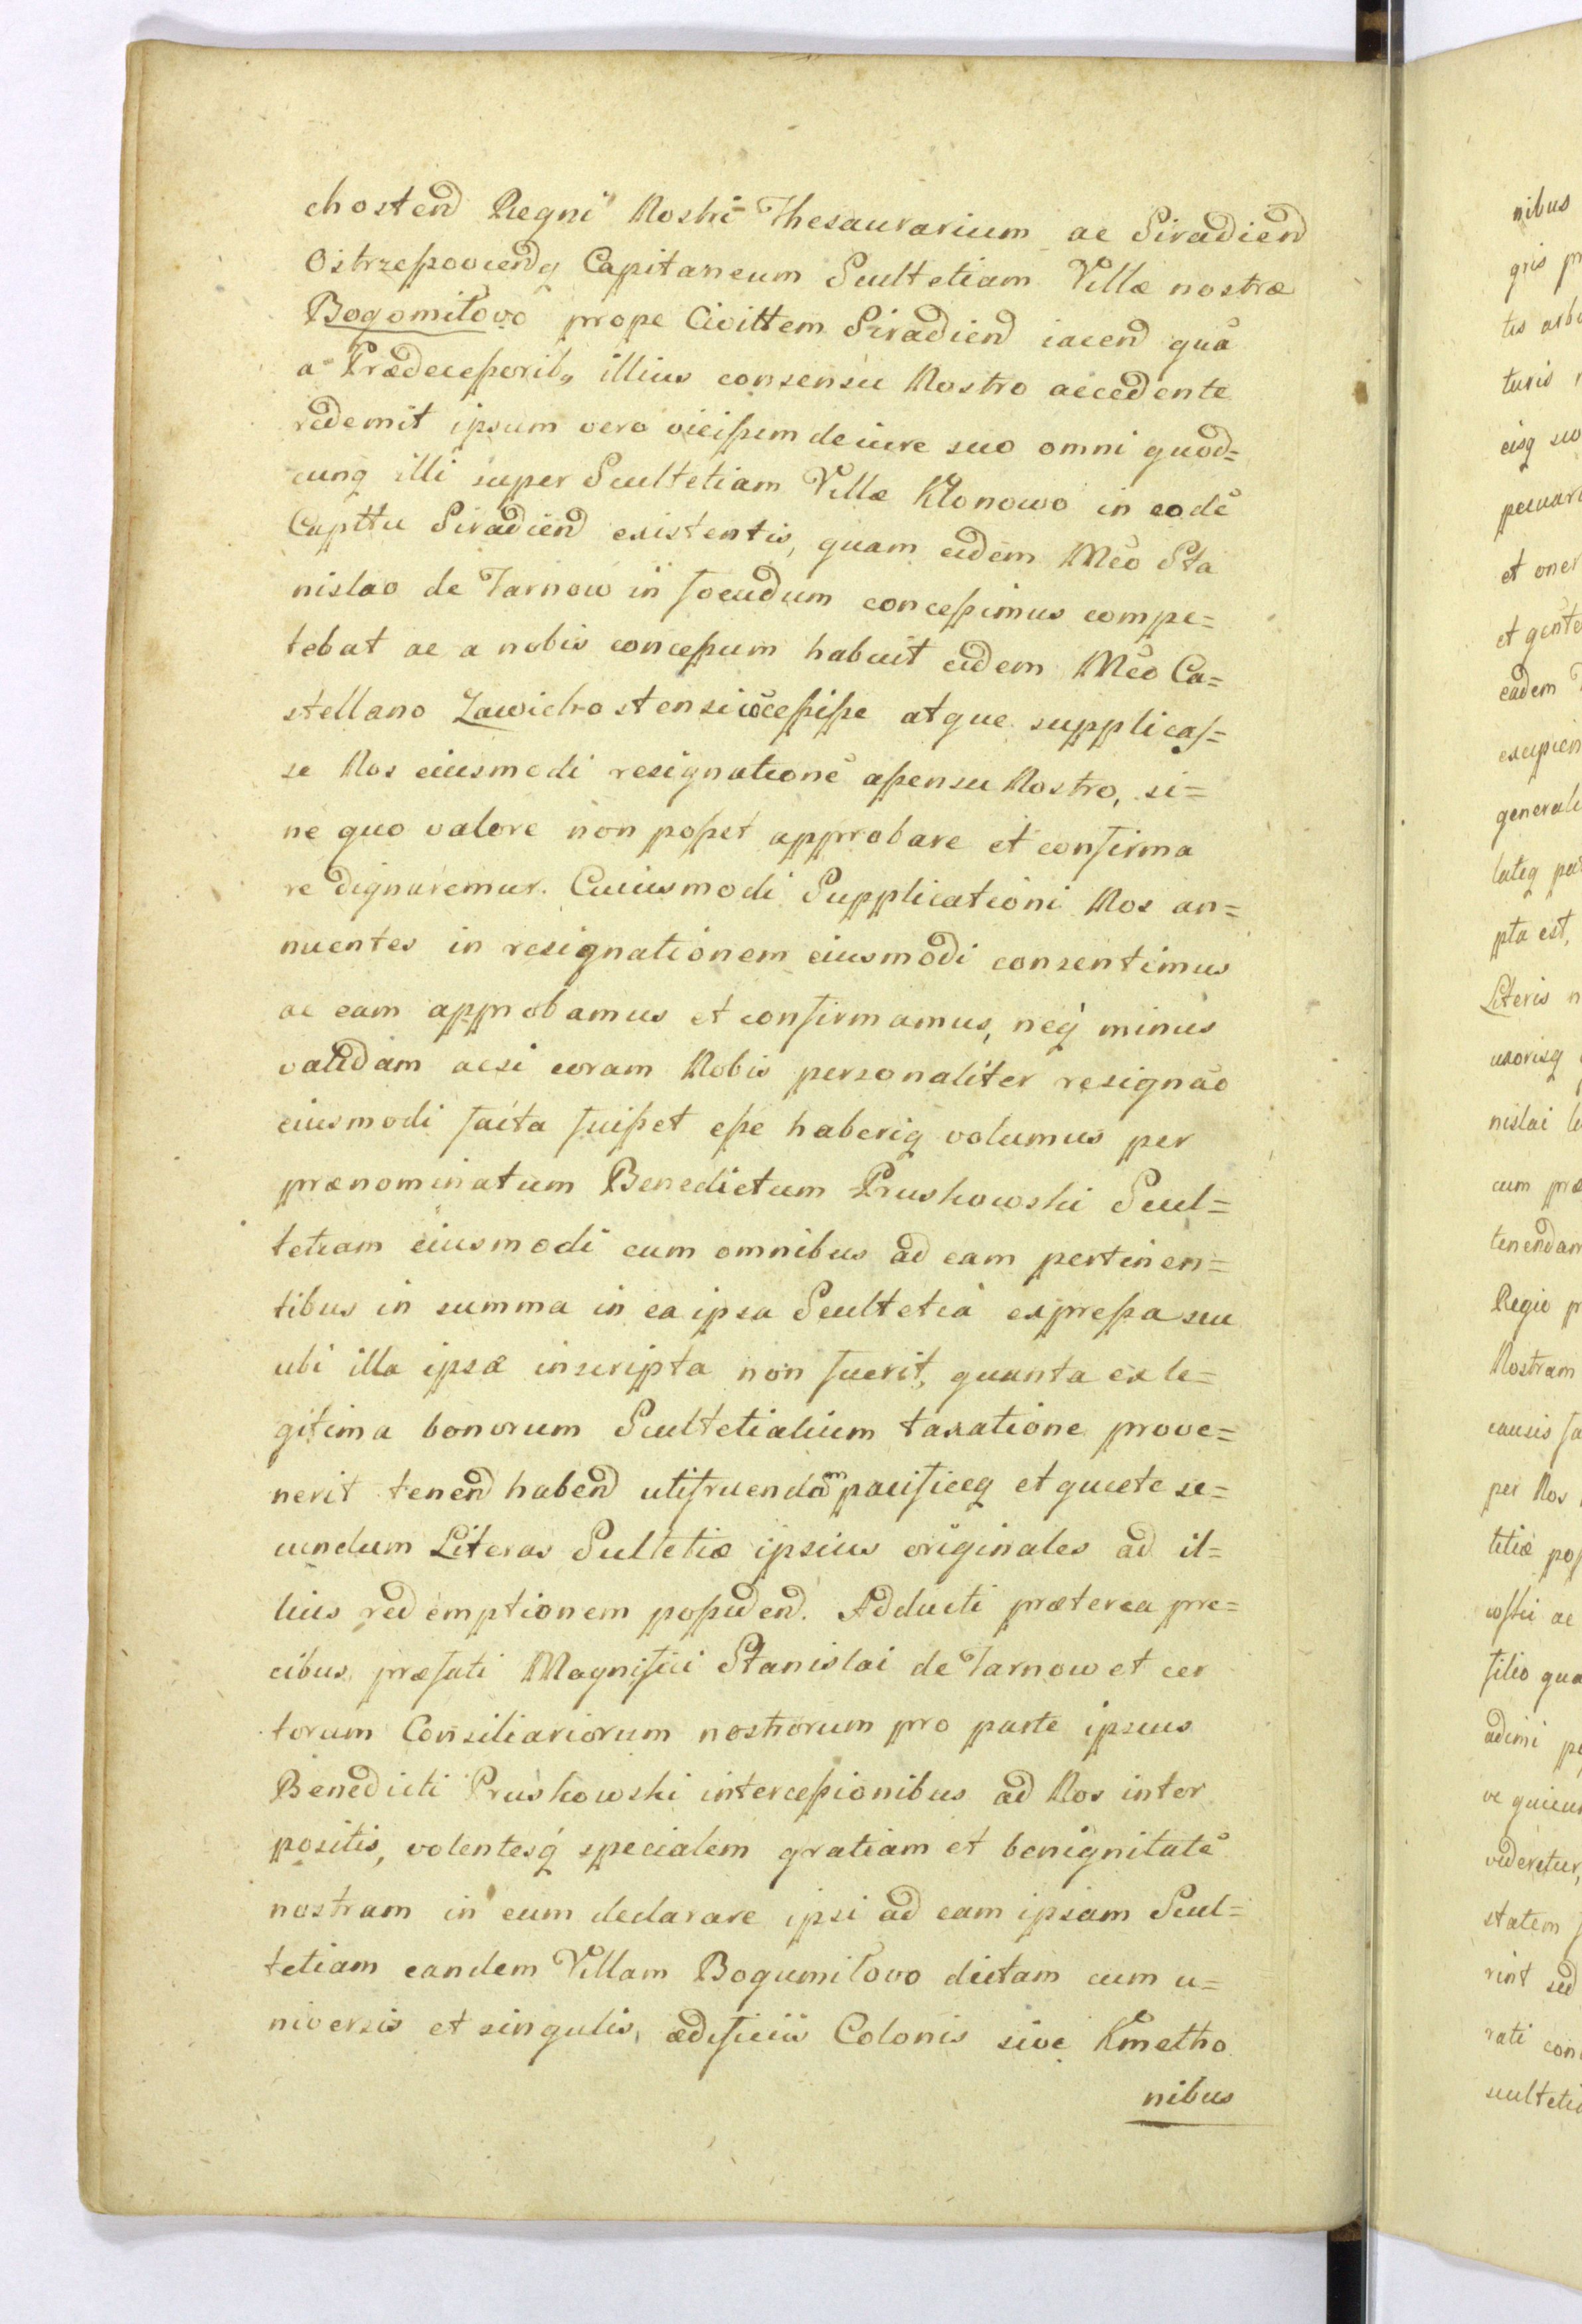 chostend Regni Nostri Thesaurarium ac Siradiend
Ostrzeszoviendq Capitaneum Scultetiam Villæ nostræ
Bogomiłovo prope Civittem Siradiend iacend quã
a Prædecessorib9 illius consensu Nostro accedente
redemit ipsum vero vicissim de iure suo omni quod=
cunq illi super Scultetiam Villæ Kłonowo in eodẽ
Capttu Siradiend existentis, quam eidem Mco Sta
nislao de Tarnow in foeudum concessimus compe=
tebat ac a nobis concessum habuit eidem Mco Ca=
stellano Zawichostensi cõcessisse atque supplicas=
se Nos eiusmodi resignationẽ assensu Nostro, si=
ne quo valere non posset approbare et confirma
re dignaremur. Cuiusmodi Supplicationi Nos an=
nuentes in resignationem eiusmodi consentimus
ac eam approbamus et confirmamus, neq minus
validam acsi coram Nobis personaliter resignão
eiusmodi facta fuisset esse haberiq volumus per
prænominatum Benedictum Pruskowski Scul=
tetiam eiusmodi cum omnibus ad eam pertinen=
tibus in summa in ea ipsa Scultetia expressa seu
ubi illa ipsa inscripta non fuerit, quanta ex le=
gitima bonorum Scultetialium taxatione prove=
nerit tenend habend utifruendam pacificeq et quiete se=
cundum Literas Sultetiæ ipsius originales ad il=
lius redemptionem possidend. Adducti præterea pre=
cibus præfati Magnifici Stanislai de Tarnow et cer
torum Consiliariorum nostrorum pro parte ipsius
Benedicti Pruskowski intercessionibus ad Nos inter
positis, volentesq specialem gratiam et benignitatẽ
nostram in eum declarare ipsi ad eam ipsam Scul=
tetiam eandem Villam Bogumiłovo dictam cum u=
niversis et singulis, ædificiis Colonis sive Kmetho
nibus
nibus
gris
tis
turis
eisq
et
eadem
pta est,
Literis
uxorisq
nislai
cum
Regio
Nostram
causis
per Nos
titiæ
ac
filio
adimi
videretur,
statem
rint sed
rati